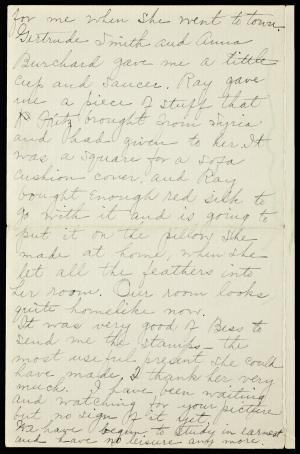 for me when she went to town.
Gertrude Smith and Anna
Burchard gave me a little
cup and saucer. Ray gave
me a piece of stuff that
Fritz brought from Syria
and had given to her. It
was a square for a sofa
cushion cover, and Ray
bought enough red silk to
go with it and is going to
put it on the pillow she
made at home, when she
let all the feathers into
her room. Our room looks
quite homelike now.
It was very good of Bess to
send me the stamps - the
most useful present she could
have made. I thank her very
much. I have been waiting
and watching for your picture
but no sign of it yet.
We have begun to study in earnest
and have no leisure any more.